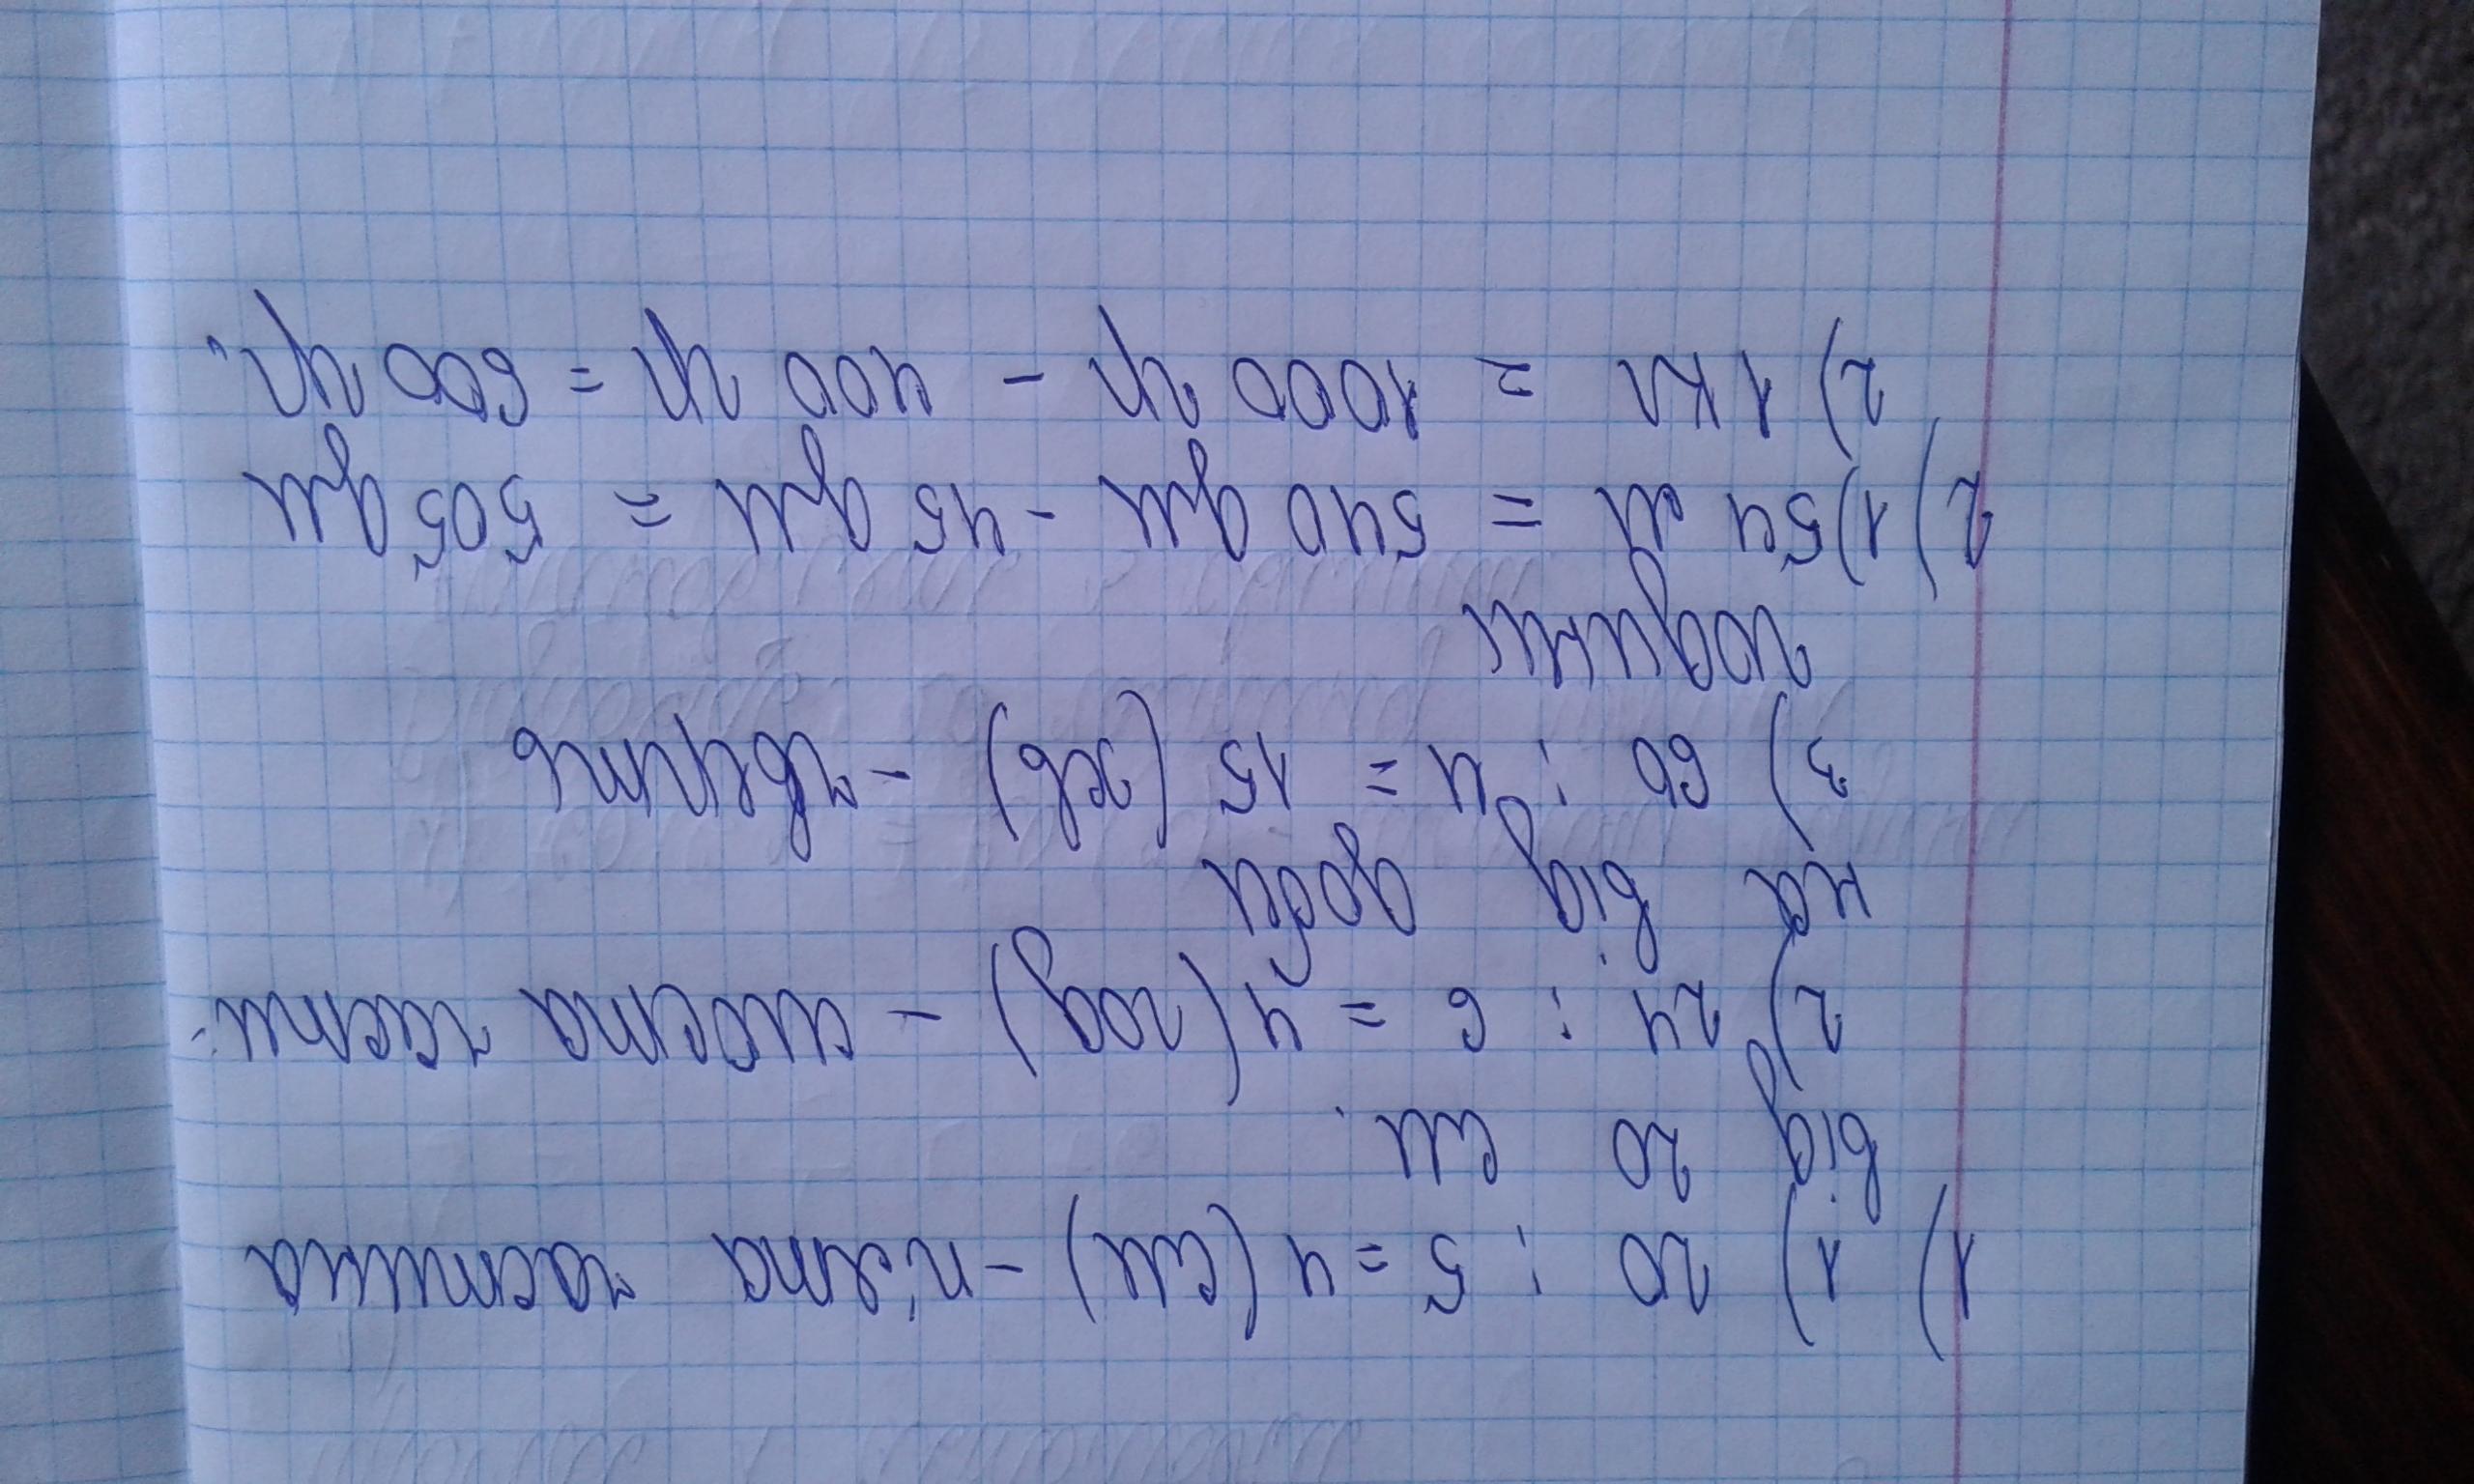 1) 1) 20 : 5 = 4 (см) - п'ята частина
від 20 см.
2) 24 : 6 = 4 (год) - шоста части-
на від доби
3) 60 : 4 = 15 (хв) - чверть
години
2) 1) 54 м = 540 дм - 45 дм = 505 дм
2) 1 кг = 1000 гр - 400 гр = 600 гр.